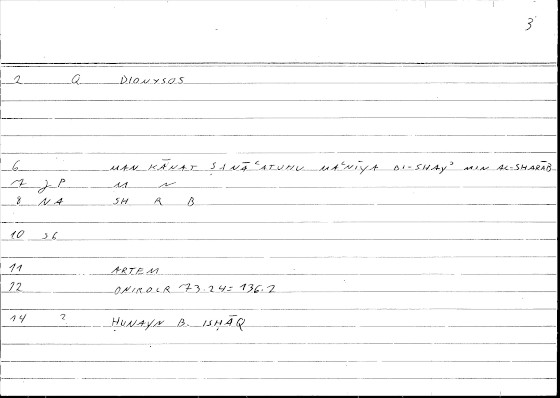 3
2 Q DIONYSOS
6 MAN KĀNAT ṢINĀʿATUHU MAʿNĪYA BI-SHAYʾ MIN AL-SHARĀB
7 JP M N
8 NA SH R B
10 S6
11 ARTEM
12 ONIROCR 73.24= 136.2
14 2 ḤUNAYN B. ISḤĀQ